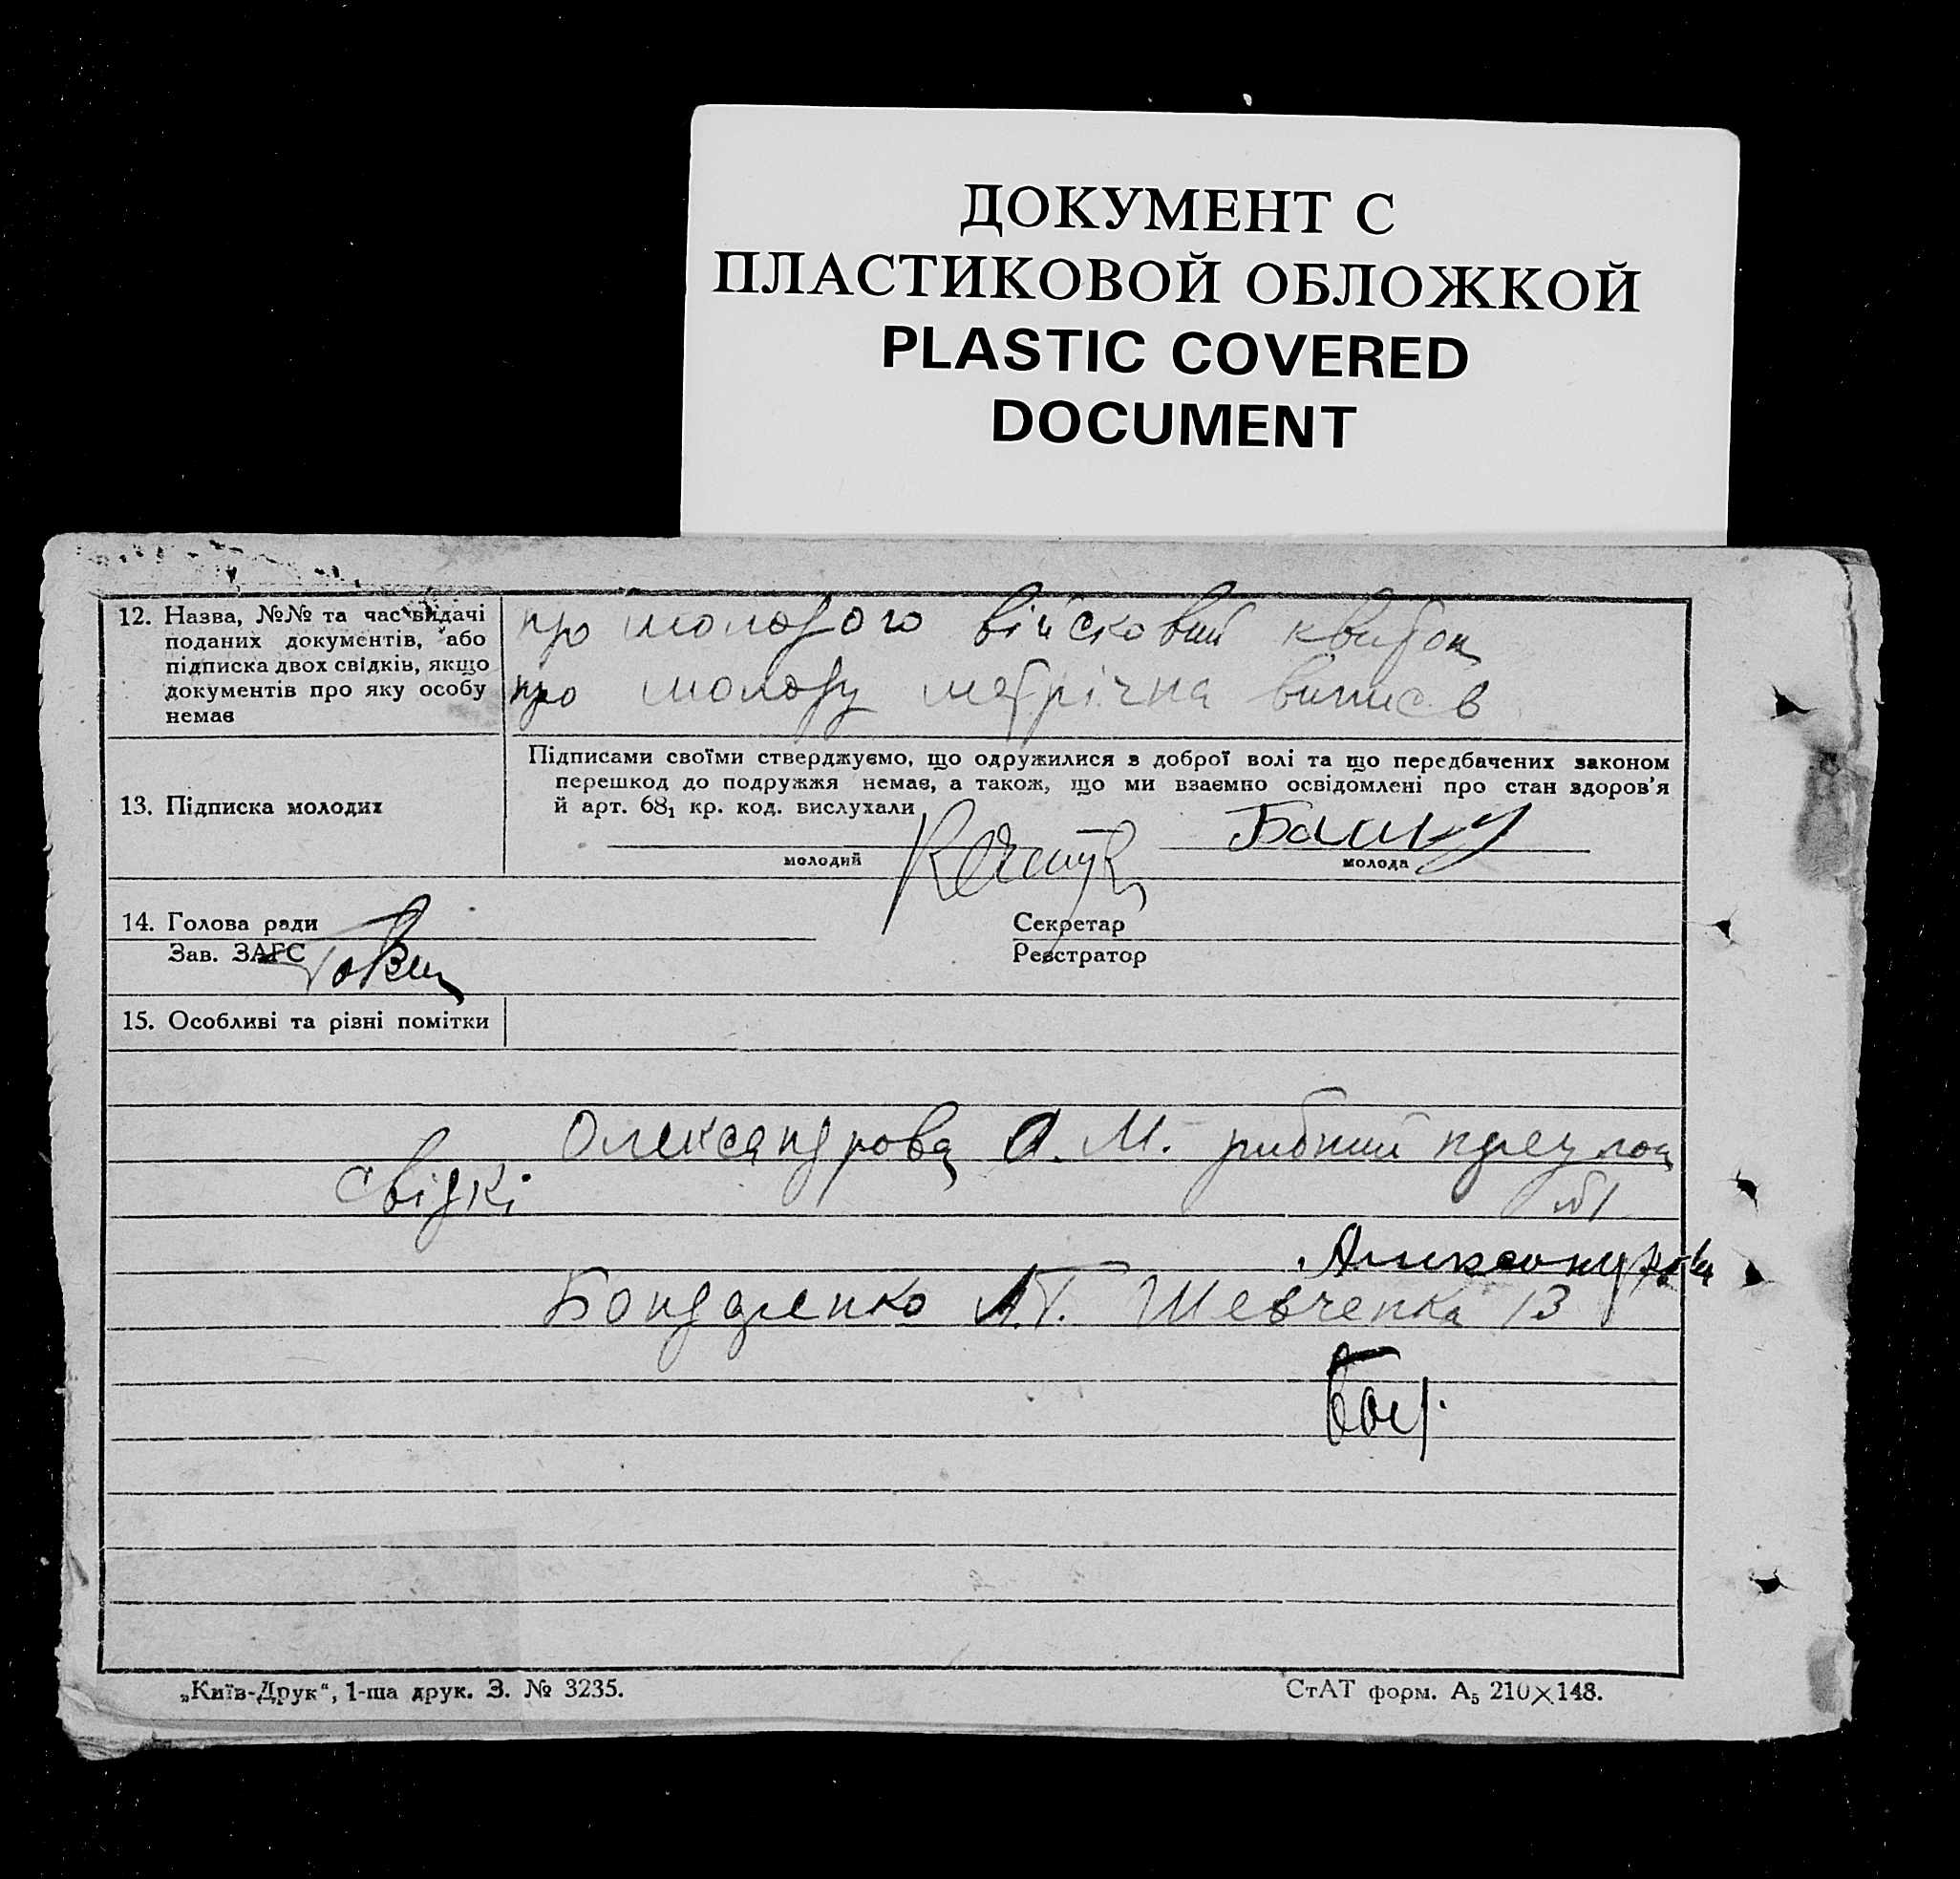 ДОКУМЕНТ С
ПЛАСТИКОВОЙ ОБЛОЖКОЙ
PLASTIC COVERED
DOCUMENT
12. Назва, №№ та час видачі
поданих документів, або
підписка двох свідків, якщо
документів про яку особу
немає
про молодого військовий квиток
про молоду метрічна випис в
13. Підписка молодих
Підписами своїми стверджуємо, що одружилися з доброї волі та що передбачених законом
перешкод до подружжя немає, а також, що ми взаємно освідомлені про стан здоров'я
й арт. 68₁ кр. код. вислухали
молодий
молода
14. Голова ради
Секретар
Зав. ЗАГС
Реєстратор
15. Особливі та різні помітки
Олександрова О. М. рибний
свідкі
№1
Бондаренко А.Г. Шевченка 13
„Київ-Друк", 1-ша друк. З. № 3235.
СтАТ форм. А₅ 210×148.